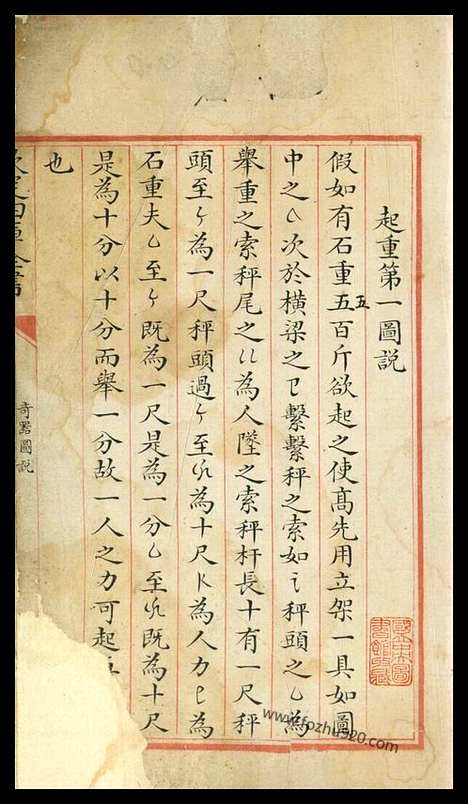 起重第一圖說
假如有石重五百斤欲起之使髙先用立架一具如圖
五
中之𠃊次於橫梁之㔾繫繫秤之索如讠秤頭之乚為
舉重之索秤尾之川為人墜之索秤杆長十有一尺秤
頭至ㄣ為一尺秤頭過ㄣ至为十尺为人力㔾為
石重夫乚至ㄣ既為一尺是為一分乚至既為十尺
是為十分以十分而舉一分故一人之力可起
也
奇器圖說
www.fozhu920.com